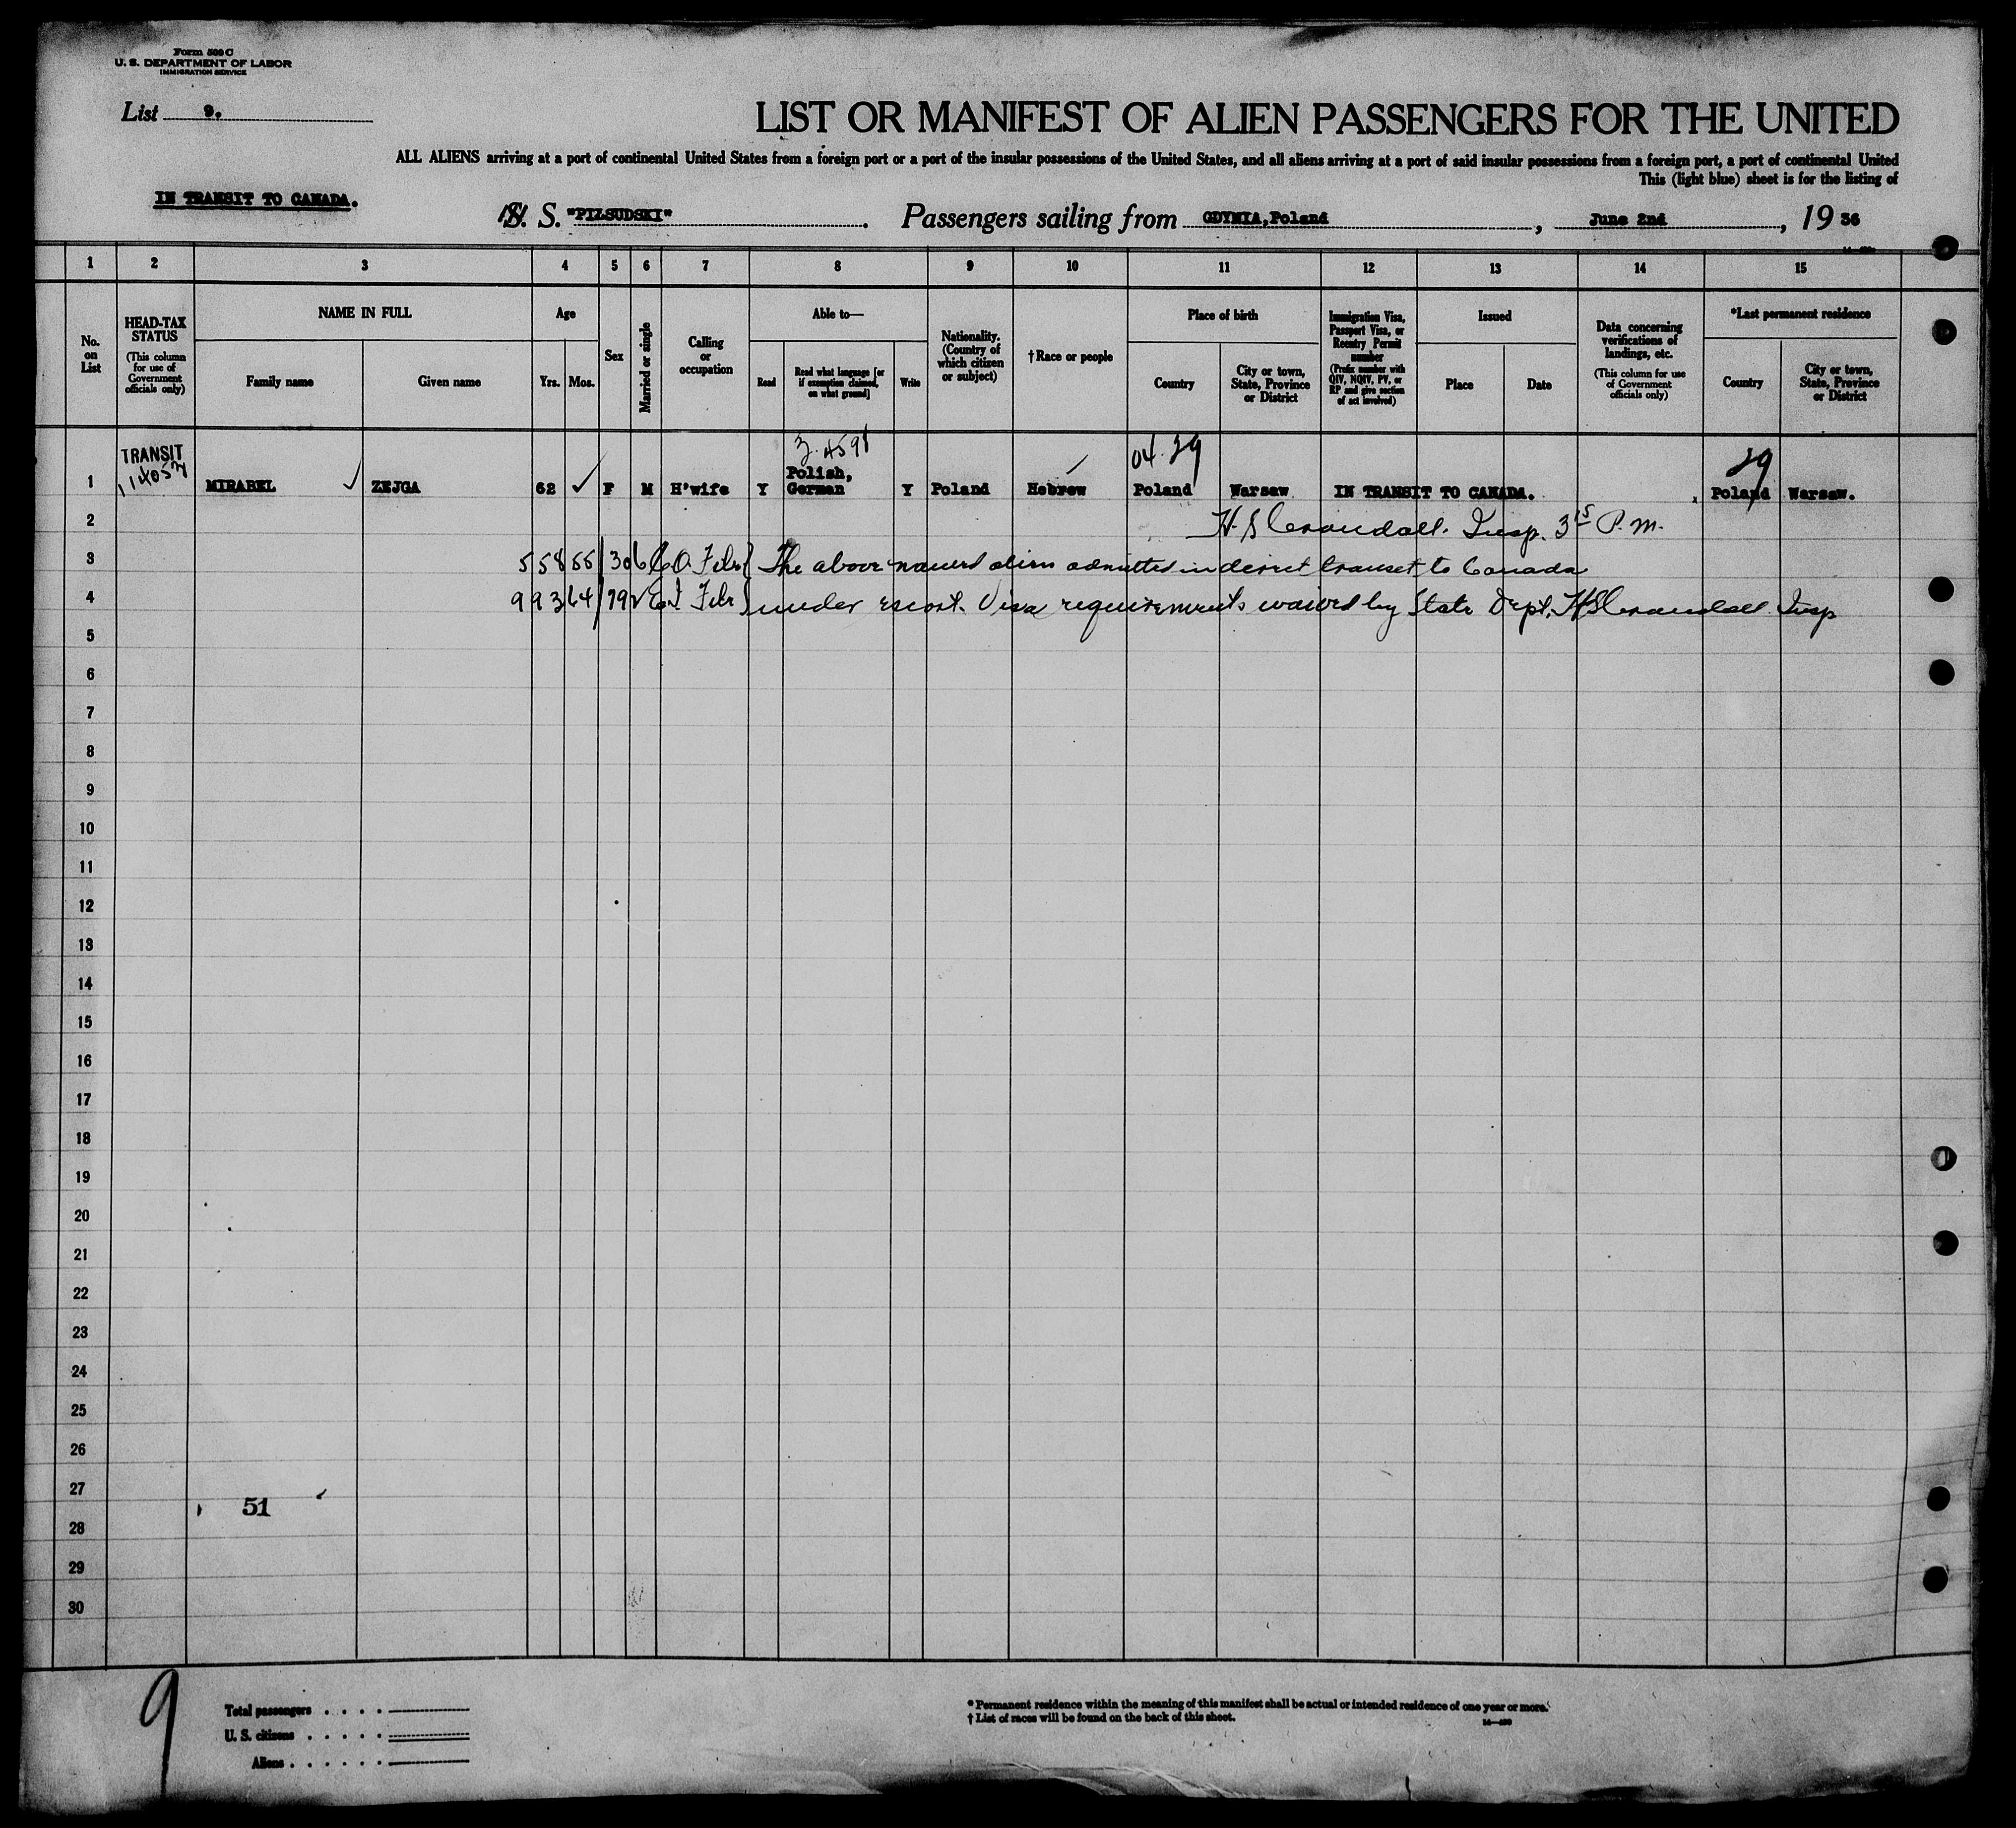 Form 500 C
U. S. DEPARTMENT OF LABOR
IMMIGRATION SERVICE
List 9.
LIST OR MANIFEST OF ALIEN PASSENGERS FOR THE UNITED
ALL ALIENS arriving at a port of continental United States from a foreign port or a port of the insular possessions of the United States, and all aliens arriving at a port of said insular possessions from a foreign port, a port of continental United
This (light blue) sheet is for the listing of
IN TRANSIT TO CANADA.
S. "PILSUDSKI". Passengers sailing from GDYNIA,Poland, June 2nd, 1936
1 2 3 4 5 6 7 8 9 10 11 12 13 14 15
No. on List
HEAD-TAX STATUS
(This column for use of Government officials only)
NAME IN FULL
Family name
Given name
Age
Yrs.
Mos.
Sex
Married or single
Calling or occupation
Able to—
Read
Read what language [or if exemption claimed, on what ground]
Write
Nationality. (Country of which citizen or subject)
†Race or people
Place of birth
Country
City or town, State, Province or District
Immigration Visa, Passport Visa, or Reentry Permit number
(Prefix number with QIV, NQIV, PV, or RP and give section of act involved)
Issued
Place
Date
Data concerning verifications of landings, etc.
(This column for use of Government officials only)
*Last permanent residence
Country
City or town, State, Province or District
TRANSIT
04.29
29
1 MIRABEL ✓ ZEJGA 62 ✓ F M H'wife Y Polish, German Y Poland Hebrew Poland Warsaw IN TRANSIT TO CANADA. Poland Warsaw.
2 H. S Crandall. Insp. 3 15 P. m.
3 55855/306 The above named alien admitted in direct transit to Canada
4 99364/792 under escort. Visa requirements waived by State Dept. HSCrandall Insp
5
6
7
8
9
10
11
12
13
14
15
16
17
18
19
20
21
22
23
24
25
26
27
51
28
29
30
9
Total passengers . . . .
U. S. citizens . . . . .
Aliens . . . . . .
* Permanent residence within the meaning of this manifest shall be actual or intended residence of one year or more.
† List of races will be found on the back of this sheet.